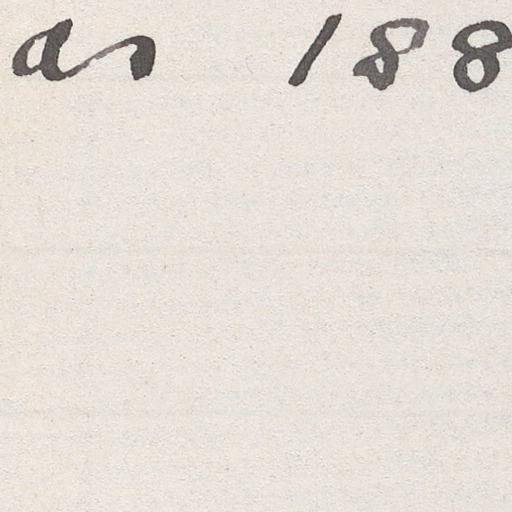 as 188